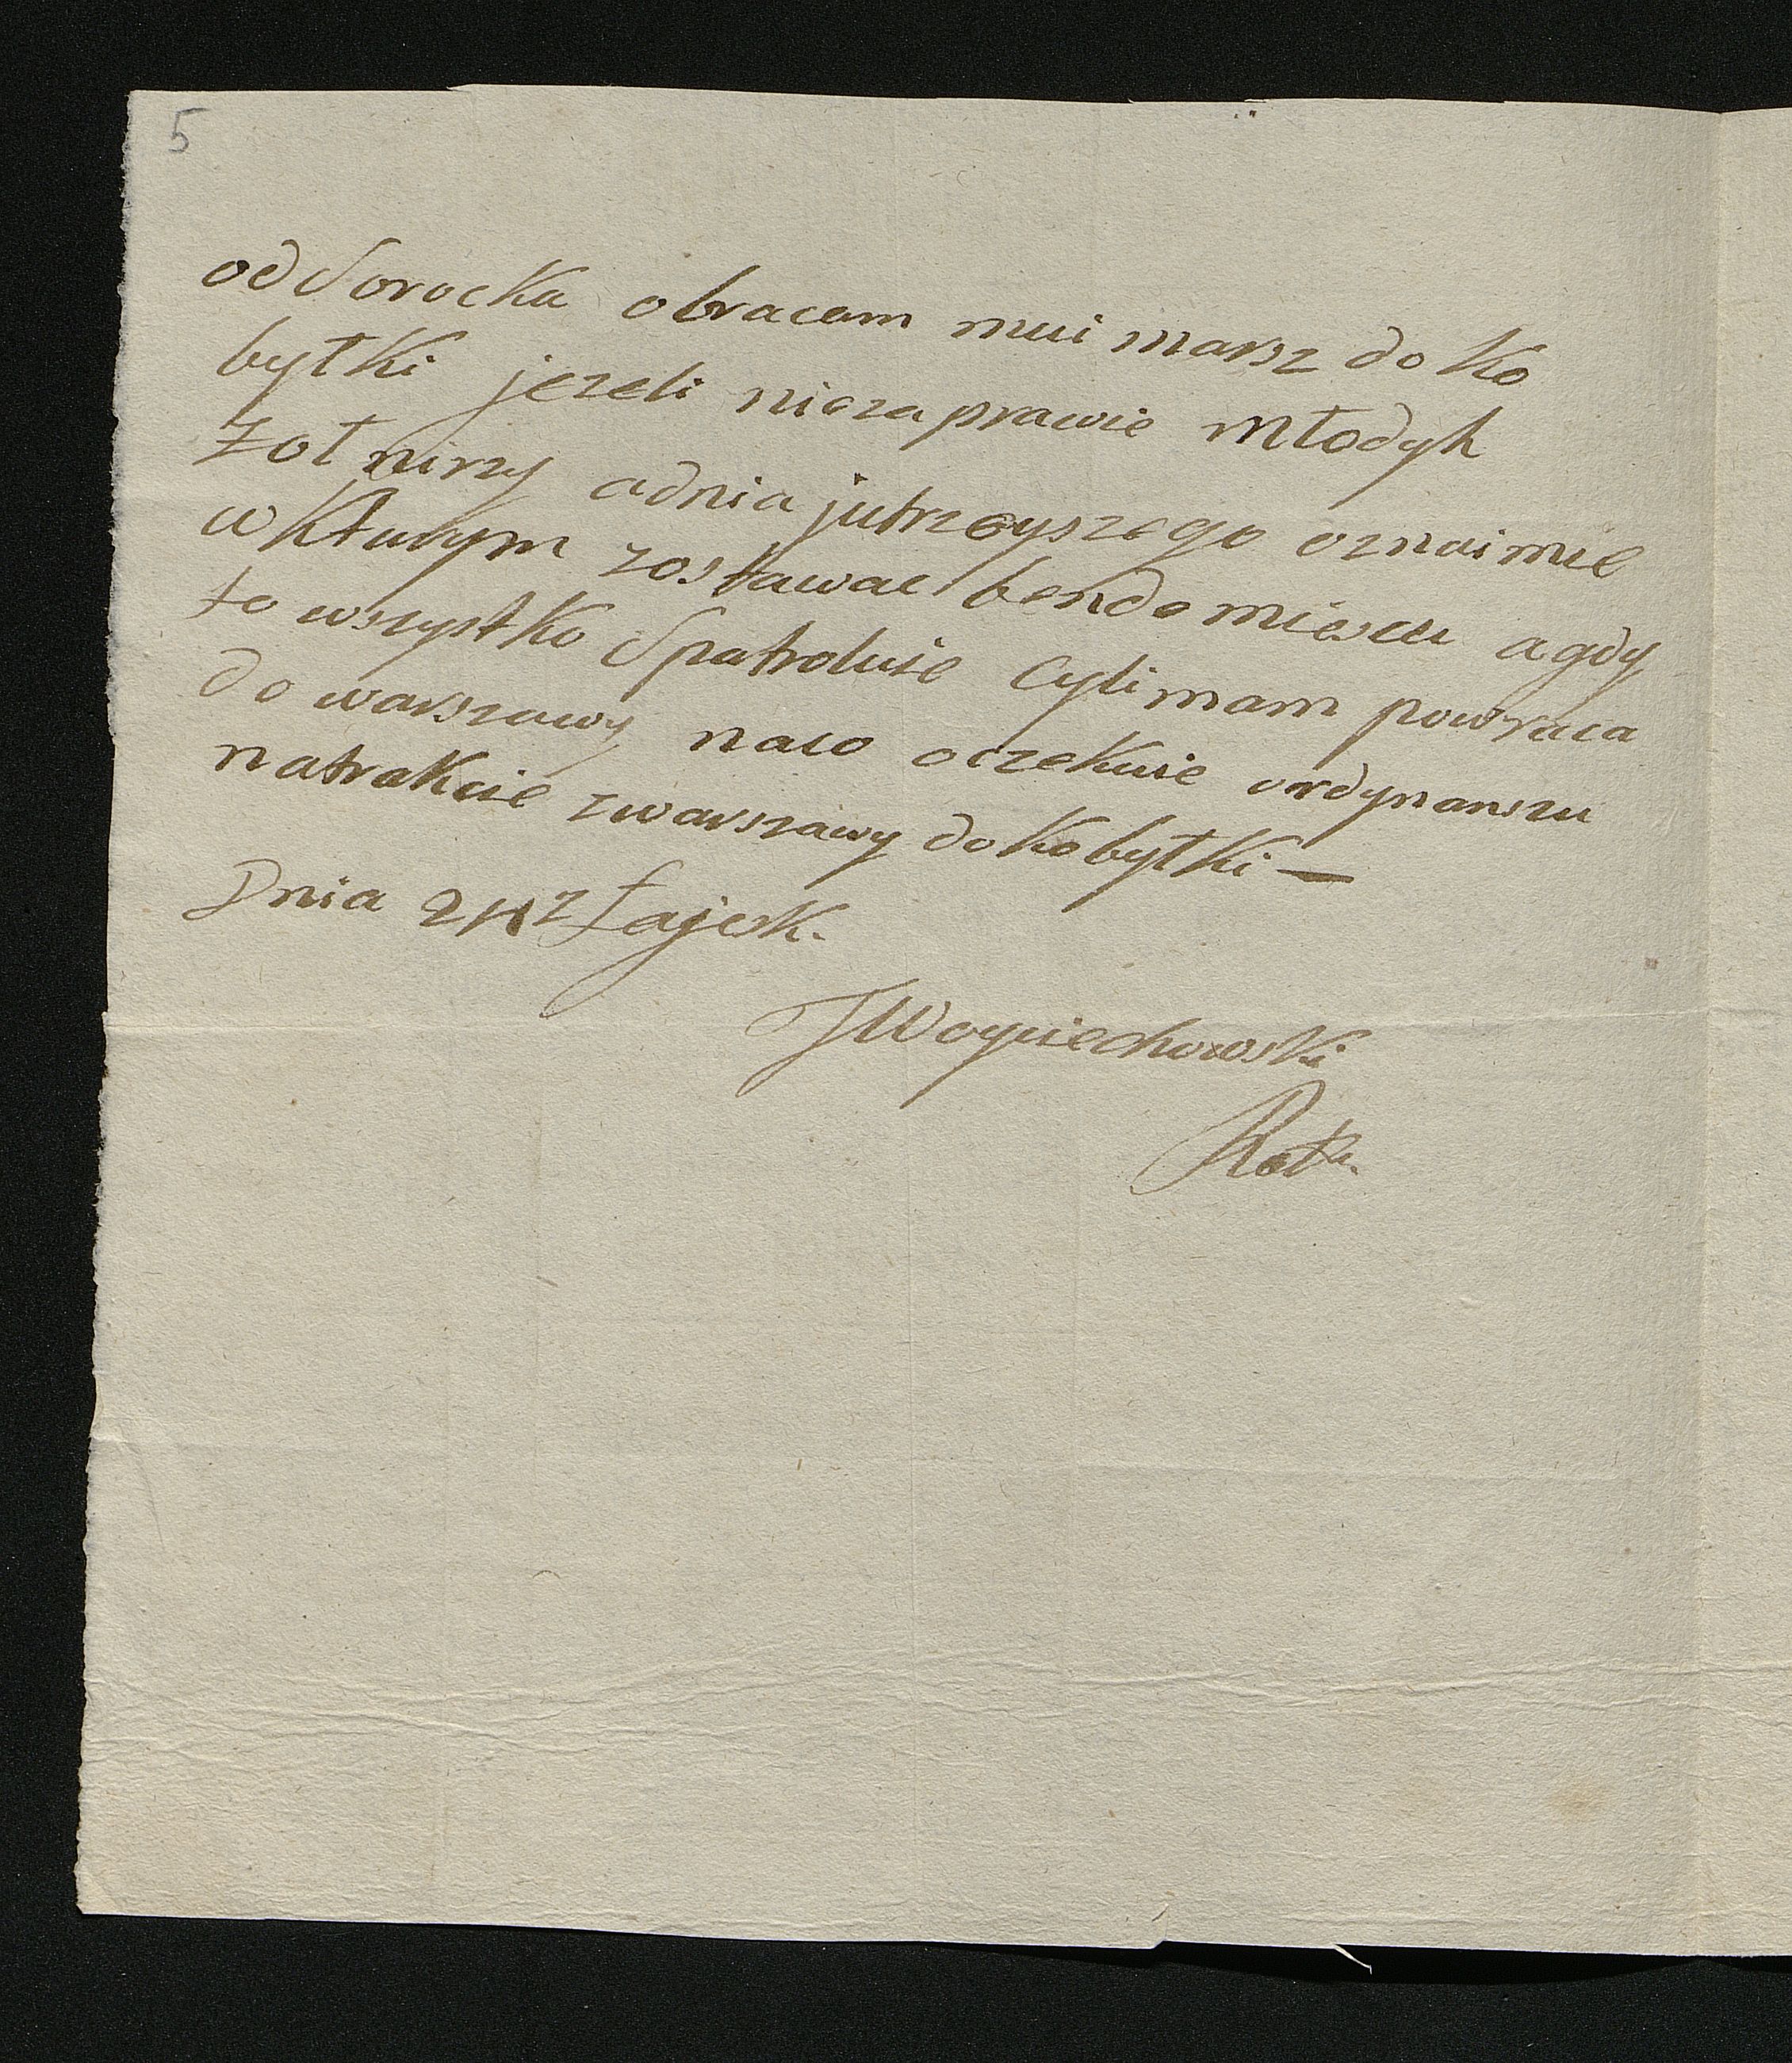 5
od Sorocka obracam mui marsz do Ko
byłki jezeli niezaprawie młodyh
zołnirzy adnia jutrzeyszego oznaimie
w Kturym zostawac bende miescu a gdy
to wszystko Spatroluie Cyli mam powraca
do warszawy naco oczekuie ordynanszu
natrakcie zwarszawy do Kobyłki —
Dnia 2 z Łajesk.
JWoyciechowski
Rot.